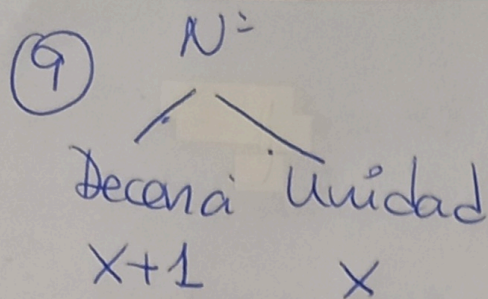 9 Nº
Decena Unidad
X+1 X